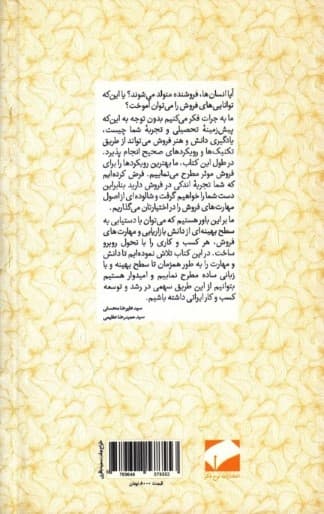 آیا انسان‌ها، فروشنده متولد می‌شوند؟ یا این‌که
توانایی‌های فروش را می‌توان آموخت؟
ما به جرات فکر می‌کنیم بدون توجه به این‌که
پیش‌زمینهٔ تحصیلی و تجربهٔ شما چیست،
یادگیری دانش و هنر فروش می‌تواند از طریق
تکنیک‌ها و رویکردهای صحیح انجام پذیرد.
در طول این کتاب، ما بهترین رویکردها را برای
فروش موثر مطرح می‌نماییم. فرض کرده‌ایم
که شما تجربهٔ اندکی در فروش دارید بنابراین
دست شما را خواهیم گرفت و شالوده‌ای از اصول
مهارت‌های فروش را در اختیارتان می‌گذاریم.
ما بر این باور هستیم که می‌توان با دستیابی به
سطح بهینه‌ای از دانش بازاریابی و مهارت‌های
فروش، هر کسب و کاری را با تحول روبرو
ساخت. در این کتاب تلاش نموده‌ایم تا دانش
و مهارت را به طور همزمان تا سطح بهینه و با
زبانی ساده مطرح نماییم و امیدوار هستیم
بتوانیم از این طریق سهمی در رشد و توسعه
کسب و کار ایرانی داشته باشیم.
سید علیرضا محسنی
سید حمیدرضا عظیمی
قیمت ۸۰۰۰ تومان